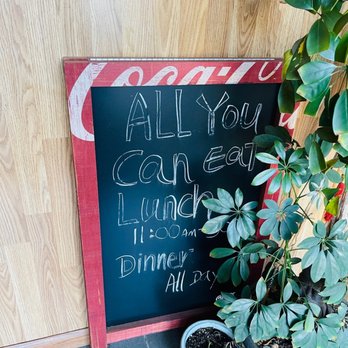 Coca-Cu
ALL You
Can Eat
Lunch
11:00am-
Dinner
All Day